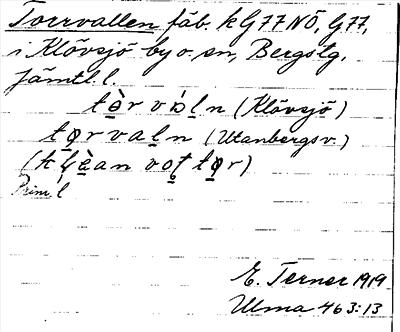 Torrvallen fäb. k G77 NÖ, G77,
i Klövsjö by o. sn, Bergs tg.
Jämtl. l.
tè̱r vɔ̀ḻn (Klövsjö)
to̱r vaḻn (Utanbergsv.)
Prim. l
E. Terner 1919
Ulma 463:13